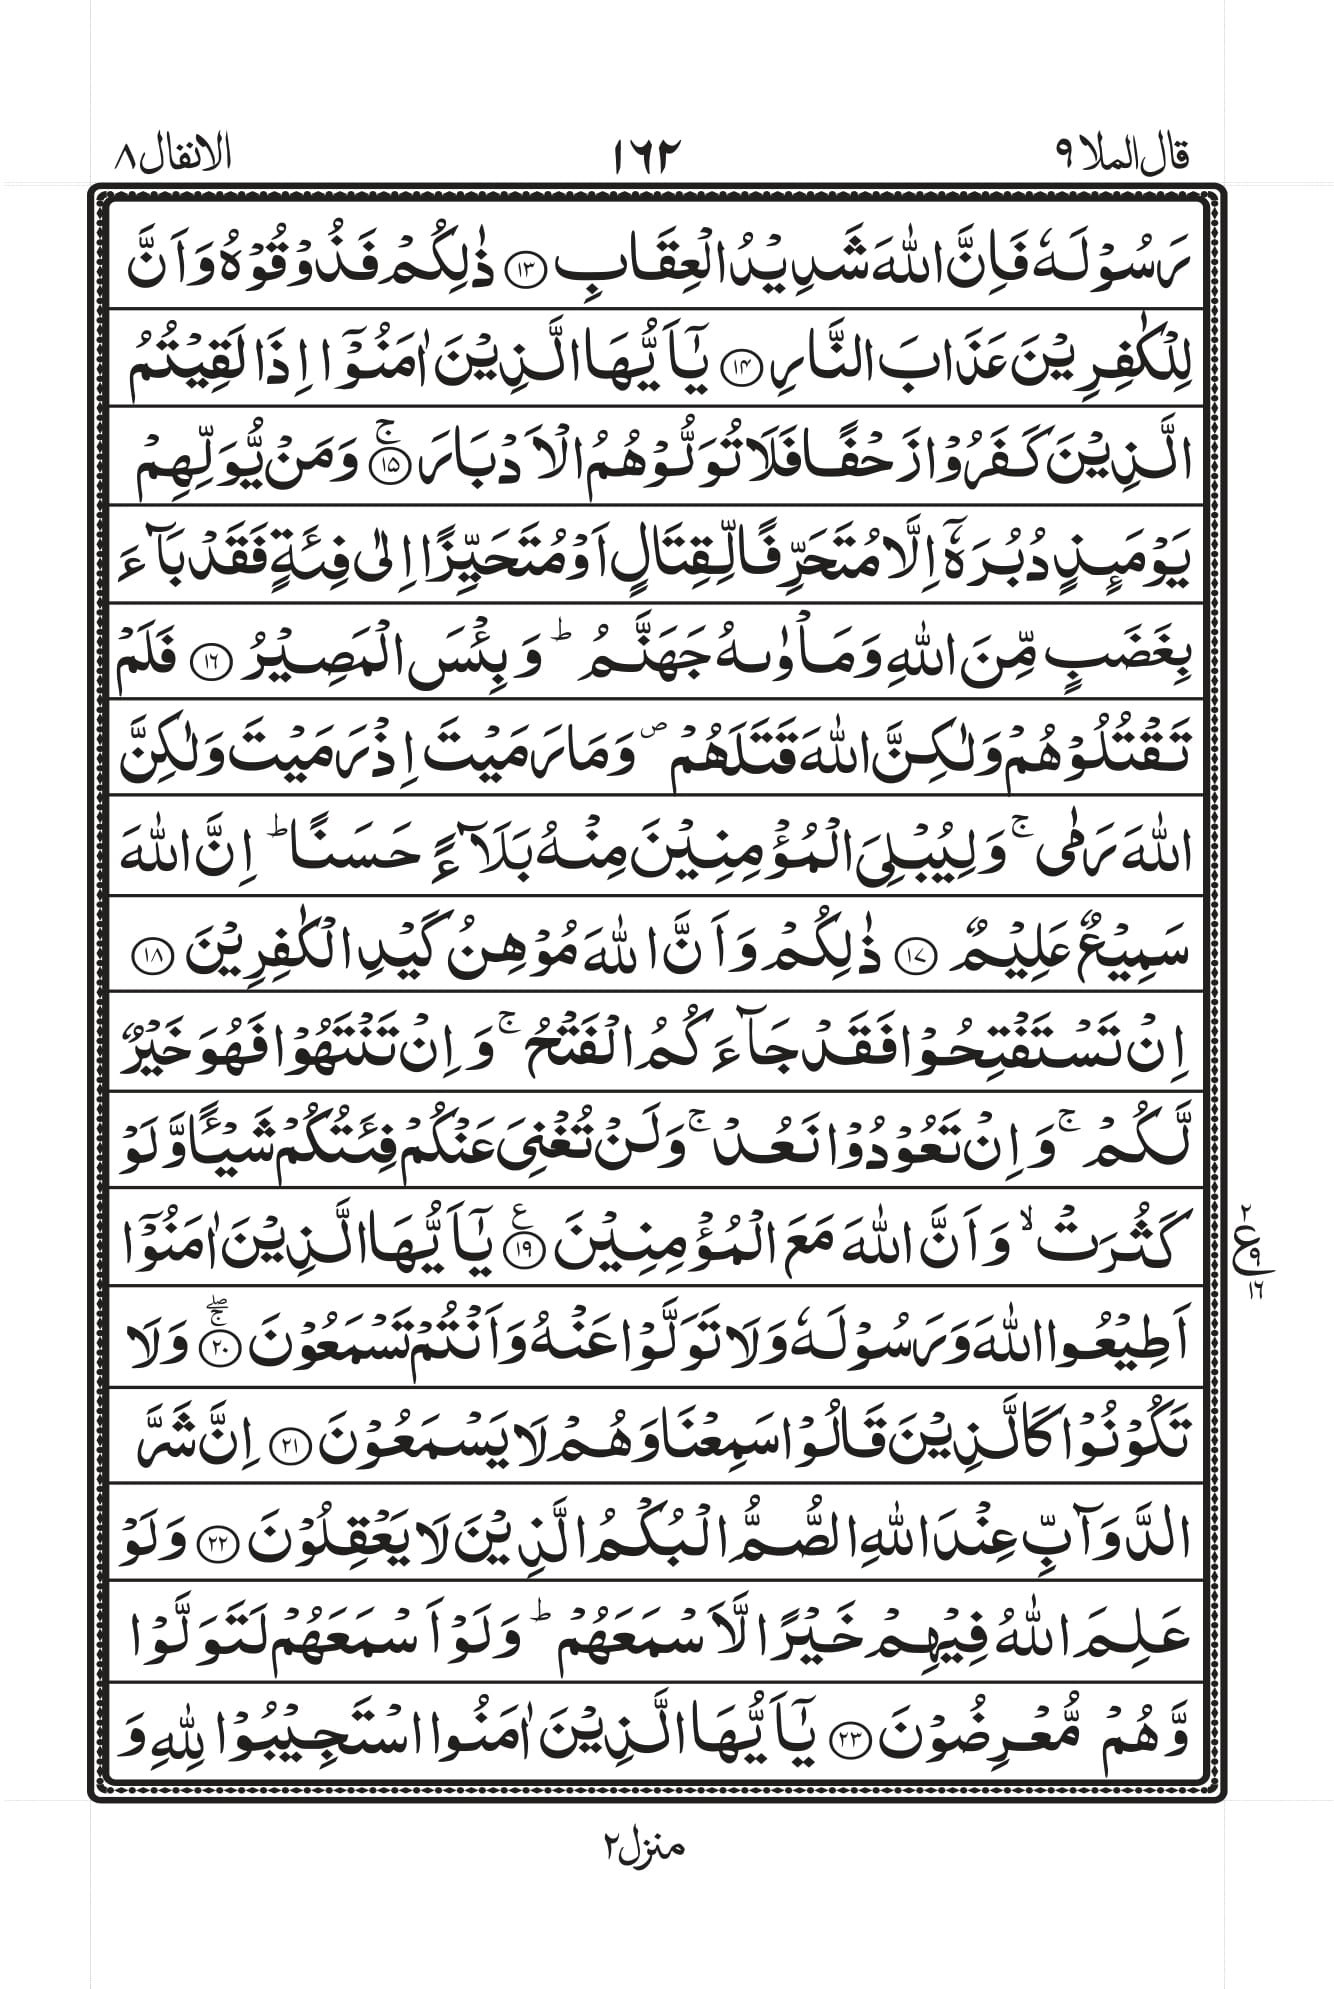 قال الملا ۹ ۱٦۲ الانفال ۸
رَسُوْلَهٗ فَاِنَّ اللّٰهَ شَدِيْدُ الْعِقَابِ ﴿۱۳﴾ ذٰلِكُمْ فَذُوْقُوْهُ وَاَنَّ
لِلْكٰفِرِيْنَ عَذَابَ النَّارِ ﴿۱۴﴾ يٰۤاَيُّهَا الَّذِيْنَ اٰمَنُوْۤا اِذَا لَقِيْتُمُ
الَّذِيْنَ كَفَرُوْا زَحْفًا فَلَا تُوَلُّوْهُمُ الْاَدْبَارَ ﴿۱۵﴾ۚ وَمَنْ يُّوَلِّهِمْ
يَوْمَىِٕذٍ دُبُرَهٗۤ اِلَّا مُتَحَرِّفًا لِّقِتَالٍ اَوْ مُتَحَيِّزًا اِلٰى فِئَةٍ فَقَدْ بَآءَ
بِغَضَبٍ مِّنَ اللّٰهِ وَمَاْوٰىهُ جَهَنَّمُ ؕ وَبِئْسَ الْمَصِيْرُ ﴿۱٦﴾ فَلَمْ
تَقْتُلُوْهُمْ وَلٰكِنَّ اللّٰهَ قَتَلَهُمْ ۪ وَمَا رَمَيْتَ اِذْ رَمَيْتَ وَلٰكِنَّ
اللّٰهَ رَمٰى ۚ وَلِيُبْلِىَ الْمُؤْمِنِيْنَ مِنْهُ بَلَآءً حَسَنًا ؕ اِنَّ اللّٰهَ
سَمِيْعٌ عَلِيْمٌ ﴿۱۷﴾ ذٰلِكُمْ وَاَنَّ اللّٰهَ مُوْهِنُ كَيْدِ الْكٰفِرِيْنَ ﴿۱۸﴾
اِنْ تَسْتَفْتِحُوْا فَقَدْ جَآءَكُمُ الْفَتْحُ ۚ وَاِنْ تَنْتَهُوْا فَهُوَ خَيْرٌ
لَّكُمْ ۚ وَاِنْ تَعُوْدُوْا نَعُدْ ۚ وَلَنْ تُغْنِىَ عَنْكُمْ فِئَتُكُمْ شَيْـًٔا وَّلَوْ
كَثُرَتْ ۙ وَاَنَّ اللّٰهَ مَعَ الْمُؤْمِنِيْنَ ﴿۱۹﴾ ع يٰۤاَيُّهَا الَّذِيْنَ اٰمَنُوْۤا
۲ ع ۹ ۱٦
اَطِيْعُوا اللّٰهَ وَرَسُوْلَهٗ وَلَا تَوَلَّوْا عَنْهُ وَاَنْتُمْ تَسْمَعُوْنَ ﴿۲۰﴾ۖۚ وَلَا
تَكُوْنُوْا كَالَّذِيْنَ قَالُوْا سَمِعْنَا وَهُمْ لَا يَسْمَعُوْنَ ﴿۲۱﴾ اِنَّ شَرَّ
الدَّوَآبِّ عِنْدَ اللّٰهِ الصُّمُّ الْبُكْمُ الَّذِيْنَ لَا يَعْقِلُوْنَ ﴿۲۲﴾ وَلَوْ
عَلِمَ اللّٰهُ فِيْهِمْ خَيْرًا لَّاَسْمَعَهُمْ ؕ وَلَوْ اَسْمَعَهُمْ لَتَوَلَّوْا
وَّهُمْ مُّعْرِضُوْنَ ﴿۲۳﴾ يٰۤاَيُّهَا الَّذِيْنَ اٰمَنُوا اسْتَجِيْبُوْا لِلّٰهِ وَ
منزل ۲